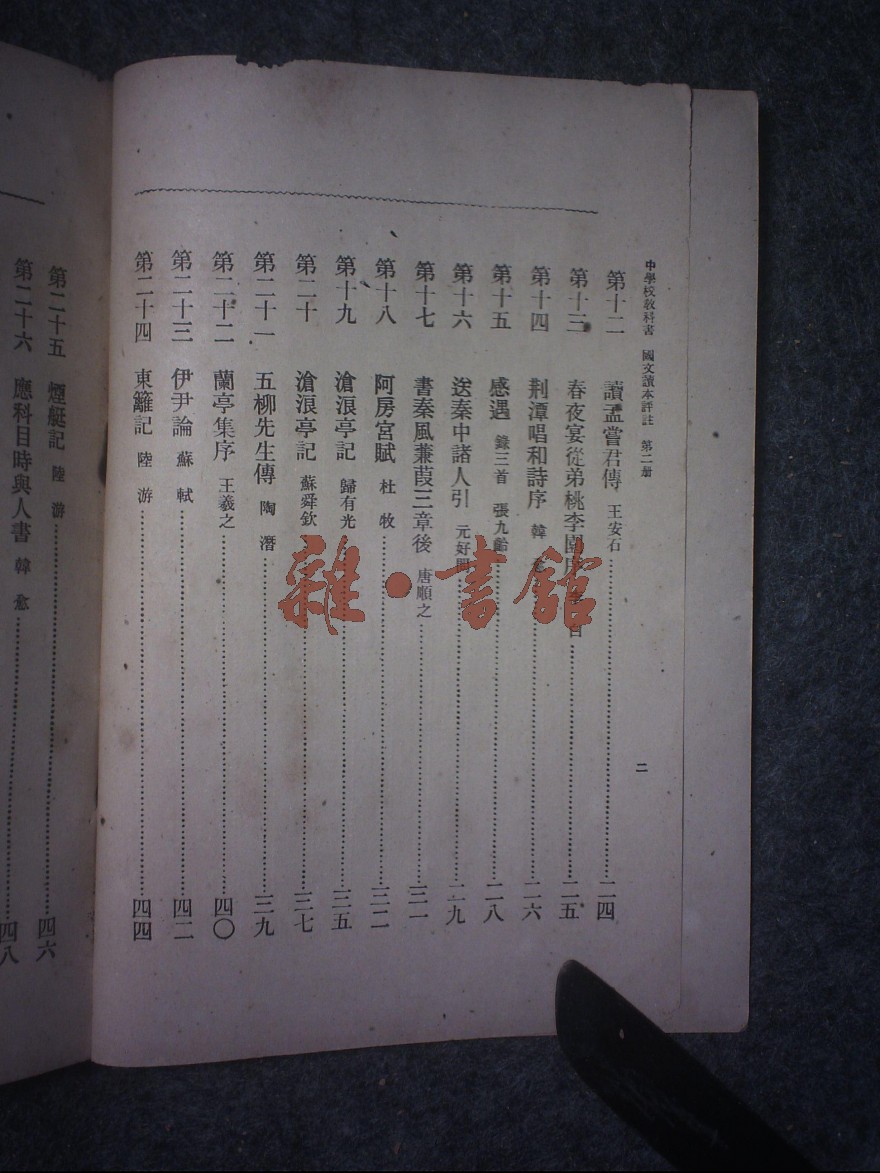 中學校教科書　國文讀本評註　第二册
二
第十二　讀孟嘗君傳　王安石……二四
第十三　春夜宴從弟桃李園序……二五
第十四　荆潭唱和詩序　韓……二六
第十五　感遇　錄三首　張九齡……二八
第十六　送秦中諸人引　元好問……二九
第十七　書秦風蒹葭三章後　唐順之……三一
第十八　阿房宮賦　杜牧……三二
第十九　滄浪亭記　歸有光……三五
第二十　滄浪亭記　蘇舜欽……三七
第二十一　五柳先生傳　陶潛……三九
第二十二　蘭亭集序　王羲之……四〇
第二十三　伊尹論　蘇軾……四二
第二十四　東籬記　陸游……四四
第二十五　煙艇記　陸游……四六
第二十六　應科目時與人書　韓愈……四八
雜·書館